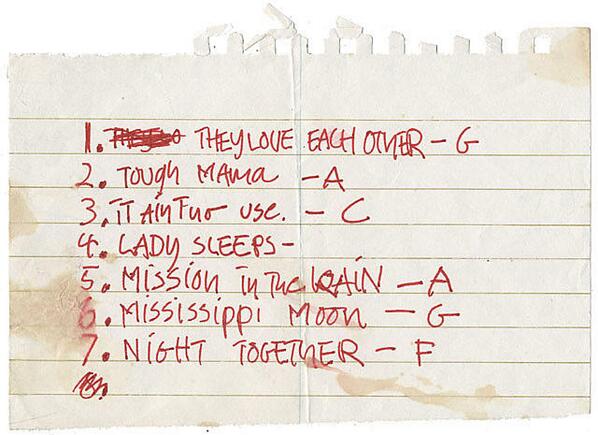 1. THEY LOVE EACH OTHER - G
2. TOUGH MAMA - A
3. IT AIN'T NO USE. - C
4. LADY SLEEPS -
5. MISSION IN THE RAIN - A
6. MISSISSIPPI MOON - G
7. NIGHT TOGETHER - F